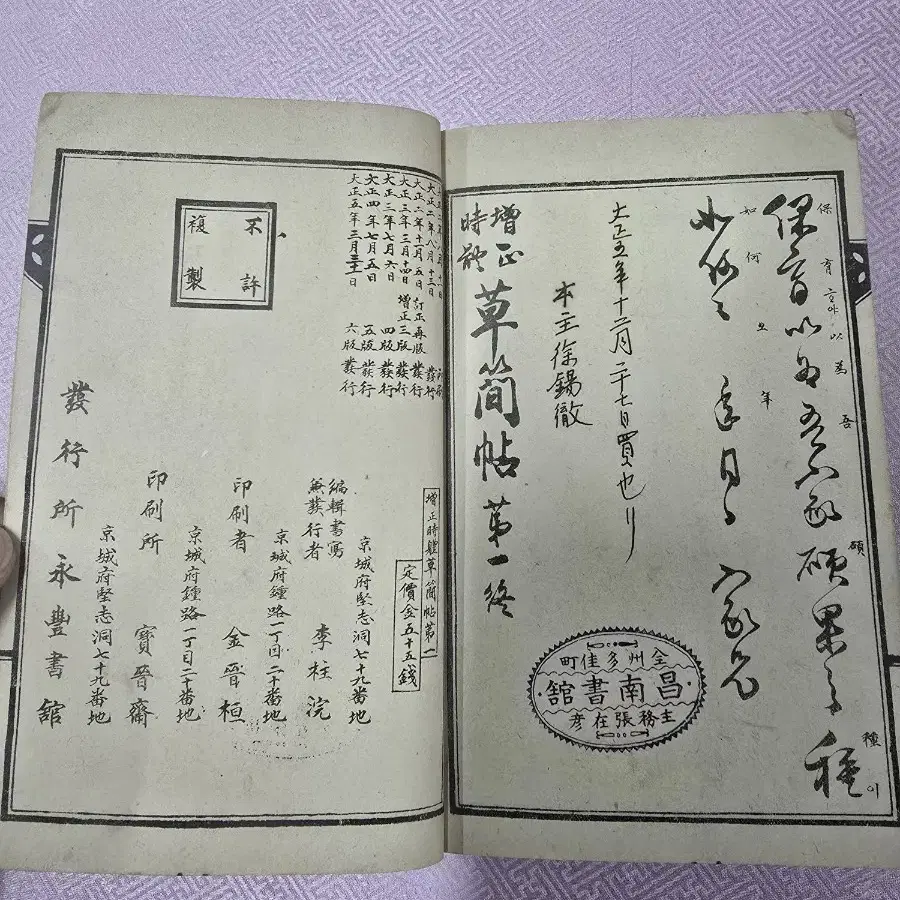 保有ᄒᆞ야以爲吾家碩果之種이
如何如何
年月日 家兄
大正五年十二月二十七日買也
本主徐錫徹
增正
時體
草簡帖第一終
全州多佳町
昌南書舘
主務張在彦
大正二年八月十三日
大正二年十一月五日 訂正再版 發行
大正三年三月十四日 增正三版 發行
大正三年七月六日 四版 發行
大正四年七月五日 五版 發行
大正五年三月三十日 六版 發行
不許
複製
增正時體草簡帖第一
定價金五十五錢
京城府堅志洞七十九番地
編輯書寫
兼發行者 李柱浣
京城府鍾路一丁目二十番地
印刷者 金晉桓
京城府鍾路一丁目二十番地
印刷所 寶晉齋
京城府堅志洞七十九番地
發行所永豐書舘